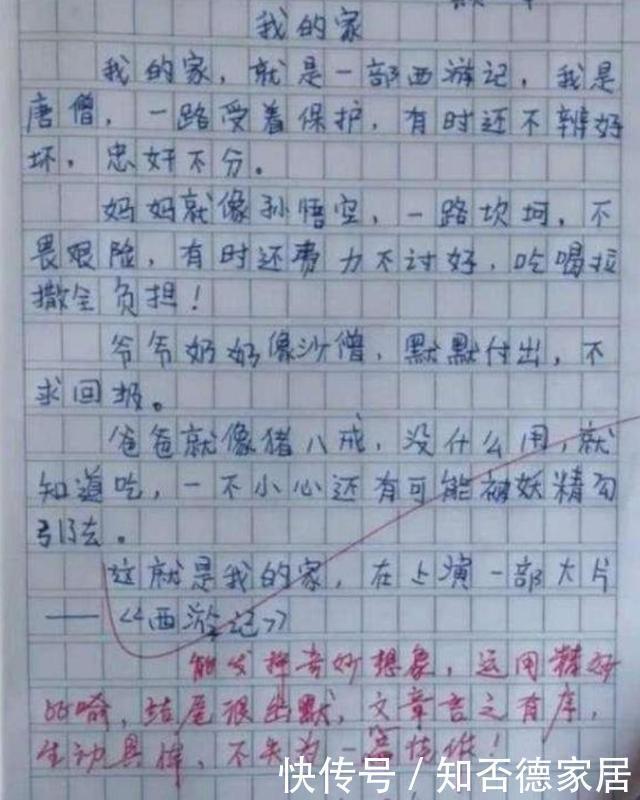 我的家
我的家，就是一部西游记，我是
唐僧，一路受着保护，有时还不辨好
坏，忠奸不分。
妈妈就像孙悟空，一路坎坷，不
畏艰险，有时还费力不讨好，吃喝拉
撒全负担！
爷爷奶奶像沙僧，默默付出，不
求回报。
爸爸就像猪八戒，没什么用，就
知道吃，一不小心还有可能被妖精勾
引去。
这就是我的家，在上演一部大片
——《西游记》
能发挥奇妙想象，运用精妙
比喻，结尾很幽默，文章言之有序，
生动具体，不失为一篇佳作！
快传号／知否德家居